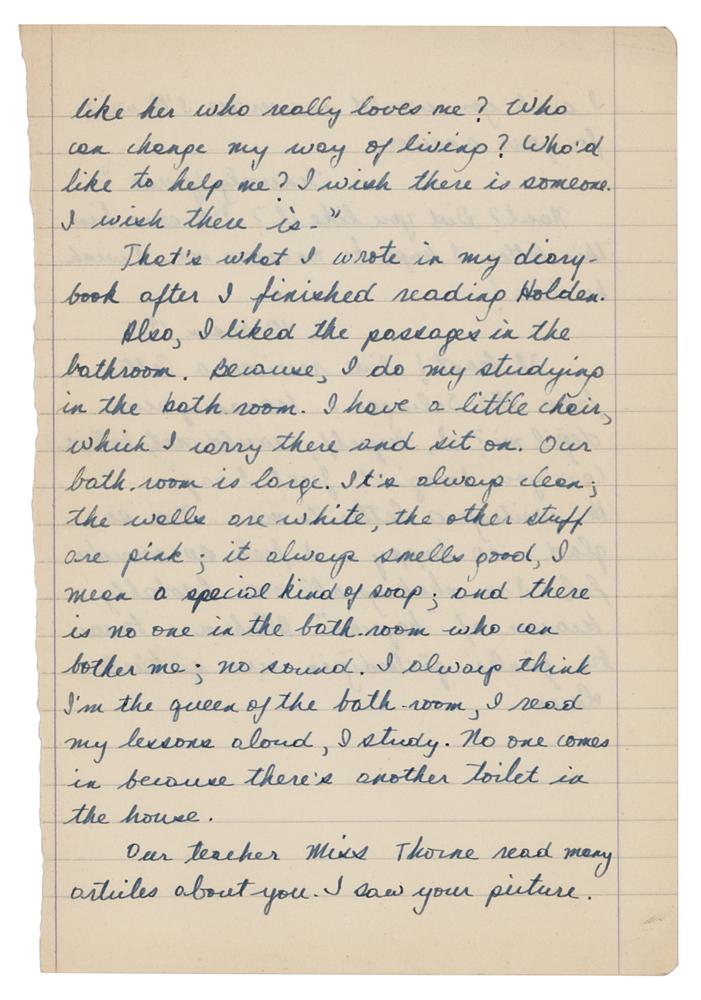 like her who really loves me? Who
can change my way of living? Who'd
like to help me? I wish there is someone.
I wish there is-"
That's what I wrote in my diary-
book after I finished reading Holden.
Also, I liked the passages in the
bathroom. Because, I do my studying
in the bath room. I have a little chair,
which I carry there and sit on. Our
bath-room is large. It's always clean;
the walls are white, the other stuff
are pink; it always smells good, I
mean a special kind of soap; and there
is no one in the bath-room who can
bother me; no sound. I always think
I'm the queen of the bath-room, I read
my lessons aloud, I study. No one comes
in because there's another toilet in
the house.
Our teacher Miss Thorne read many
articles about you. I saw your picture.